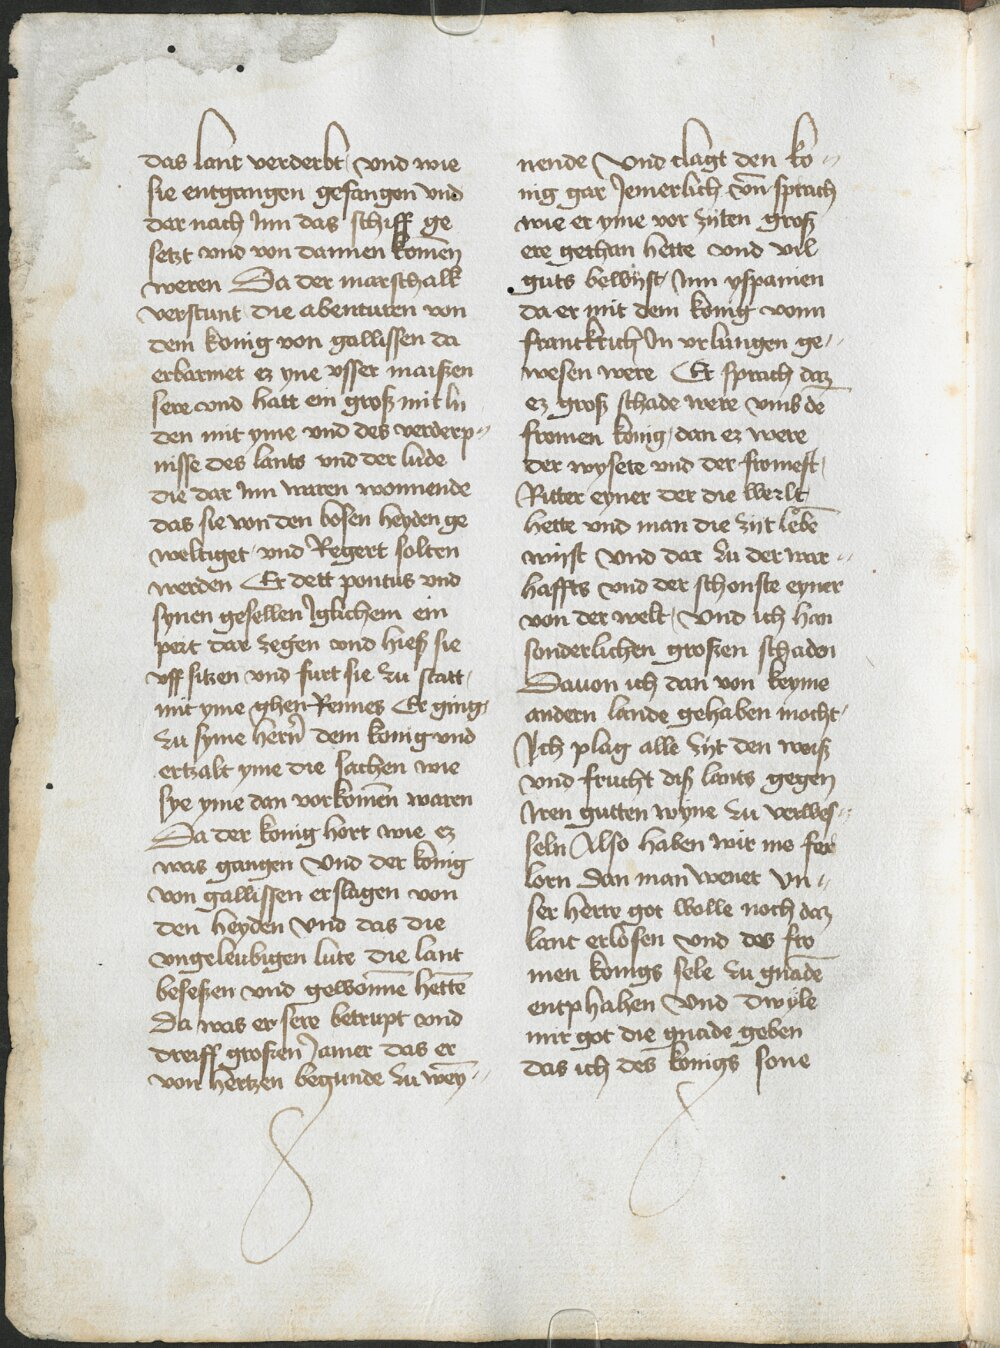 das lant verderbt / vnd wie
sie entgangen gefangen vnd
dar nach jnn das schiff ge
setzt vnd von dannen komēn
weren Da der marschalk
verstunt die abenturen von
dem konig von gallissen da
erbarmet ez yne vsser maissen
sere vnd hatt ein groß mit li
den mit yme vnd des verderp〃
nisse des lants vnd der lude
die dar jnn waren wonnende
das sie von den bosen heyden ge
weltiget vnd Regert solten
werden Er dett pontus vnd
synen gesellen Jglichem ein
pert dar zegen vnd hieß sie
vff sitzen vnd furt sie zu statt
mit yme ghen Rennes Er ging
zu syme herñ dem konig vnd
ertzalt yme die sachen wie
sye yme dan vorkomēn waren
Da der konig hort wie ez
was gangen Vnd der konig
von gallissen erslagen von
den heyden Vnd das die
vngeleubigen lute die lant
beseßen vnd gewonnē hettē
Da was er sere betrupt vnd
dreiff großen Jamer das er
von hertzen begunde zu wey〃
nende / Vnd clagt den ko〃
nig gar Jemerlich vñ sprach
wie er yme vor ziiten groß
ere gethan hette vnd vil
guts bewijst jnn yspanien
da er mit dem konig vonn
franckrich jn vrlungen ge〃
wesen were Er sprach daz
ez groß schade were vmb dē
fromen konig / dan ez were
der wysete vnd der fromest
Ritter eyner der die werlt
hette vnd man die ziit lebē
wust vnd dar zu der war〃
haffts vnd der schonste eyner
von der welt / Vnd ich han
sonderlichen großen schaden
Dauon ich dan von keyme
andern lande gehaben mocht
Ich plag alle ziit den weiß
vnd frucht diß lants gegen
Jren gutten wyne zu verwes〃
seln Also haben wir me fer
lorn dan man wenet Vn〃
ser herre got wolle noch daz
lant erlosen vnd des fro
men konigs sele zu gnade
entphahen Vnd dwyle
mir got die gnade geben
das ich des konigs sone